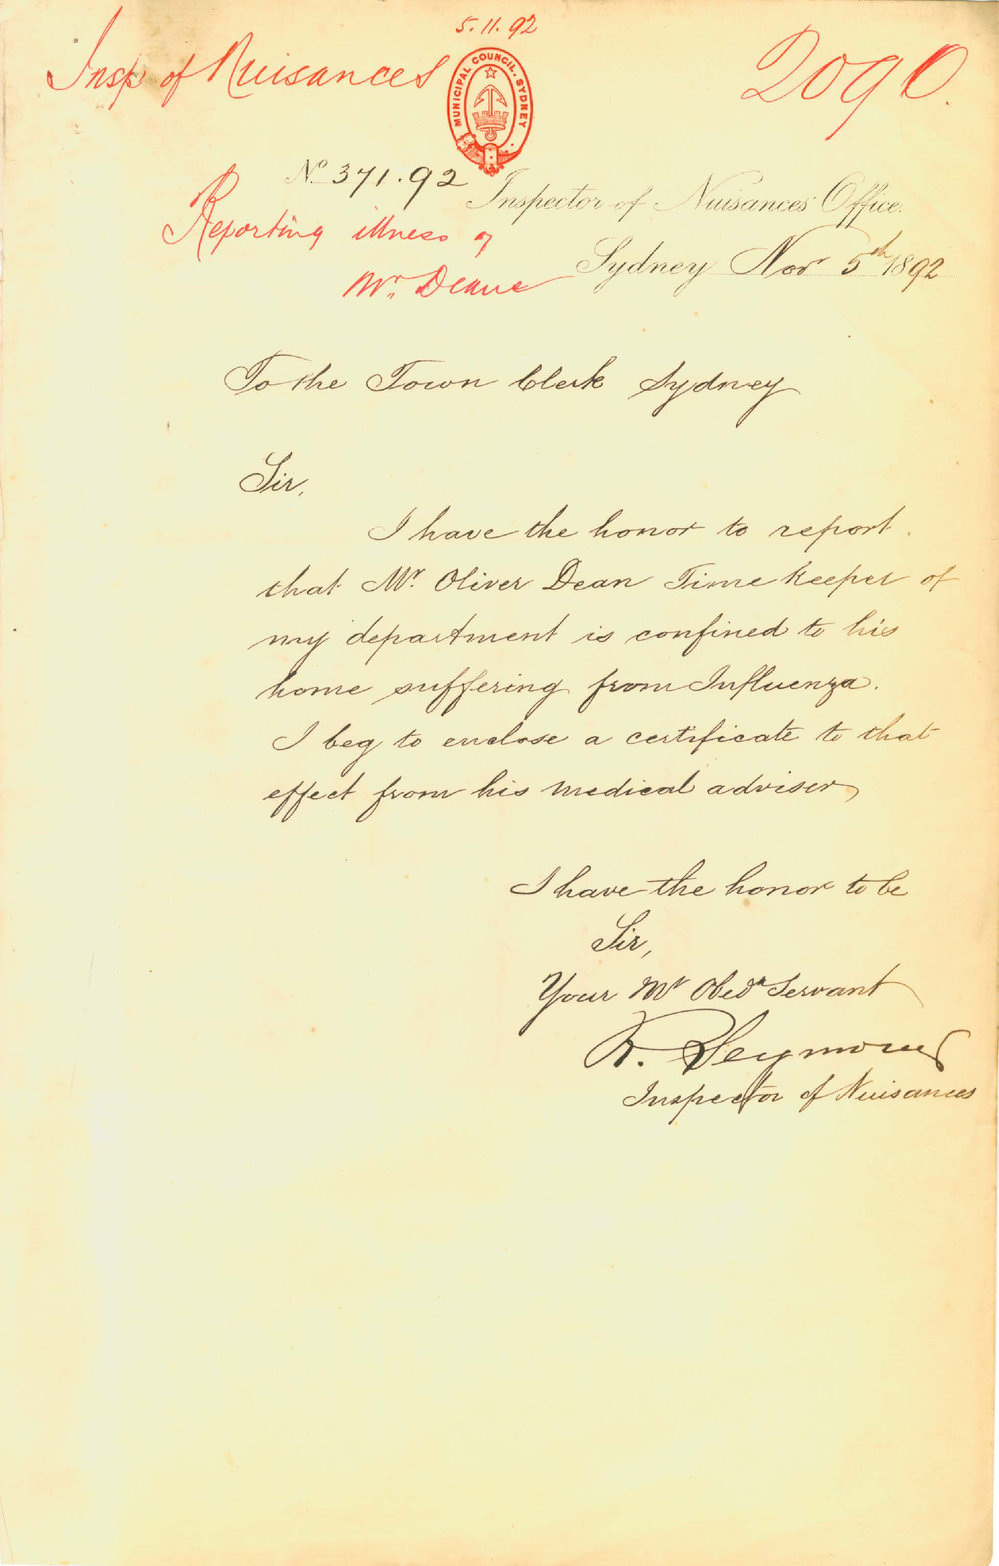 5.11.92
Insp of Nuisances
2090.
MUNICIPAL COUNCIL. SYDNEY
No 371.92
Inspector of Nuisances' Office.
Reporting illness of
Mr. Deane
Sydney Novr 5th 1892
To the Town Clerk Sydney
Sir,
I have the honor to report
that Mr Oliver Dean Time keeper of
my department is confined to his
home suffering from Influenza.
I beg to enclose a certificate to that
effect from his medical adviser
I have the honor to be
Sir,
Your Mt Obedt Servant
R. Seymour
Inspector of Nuisances